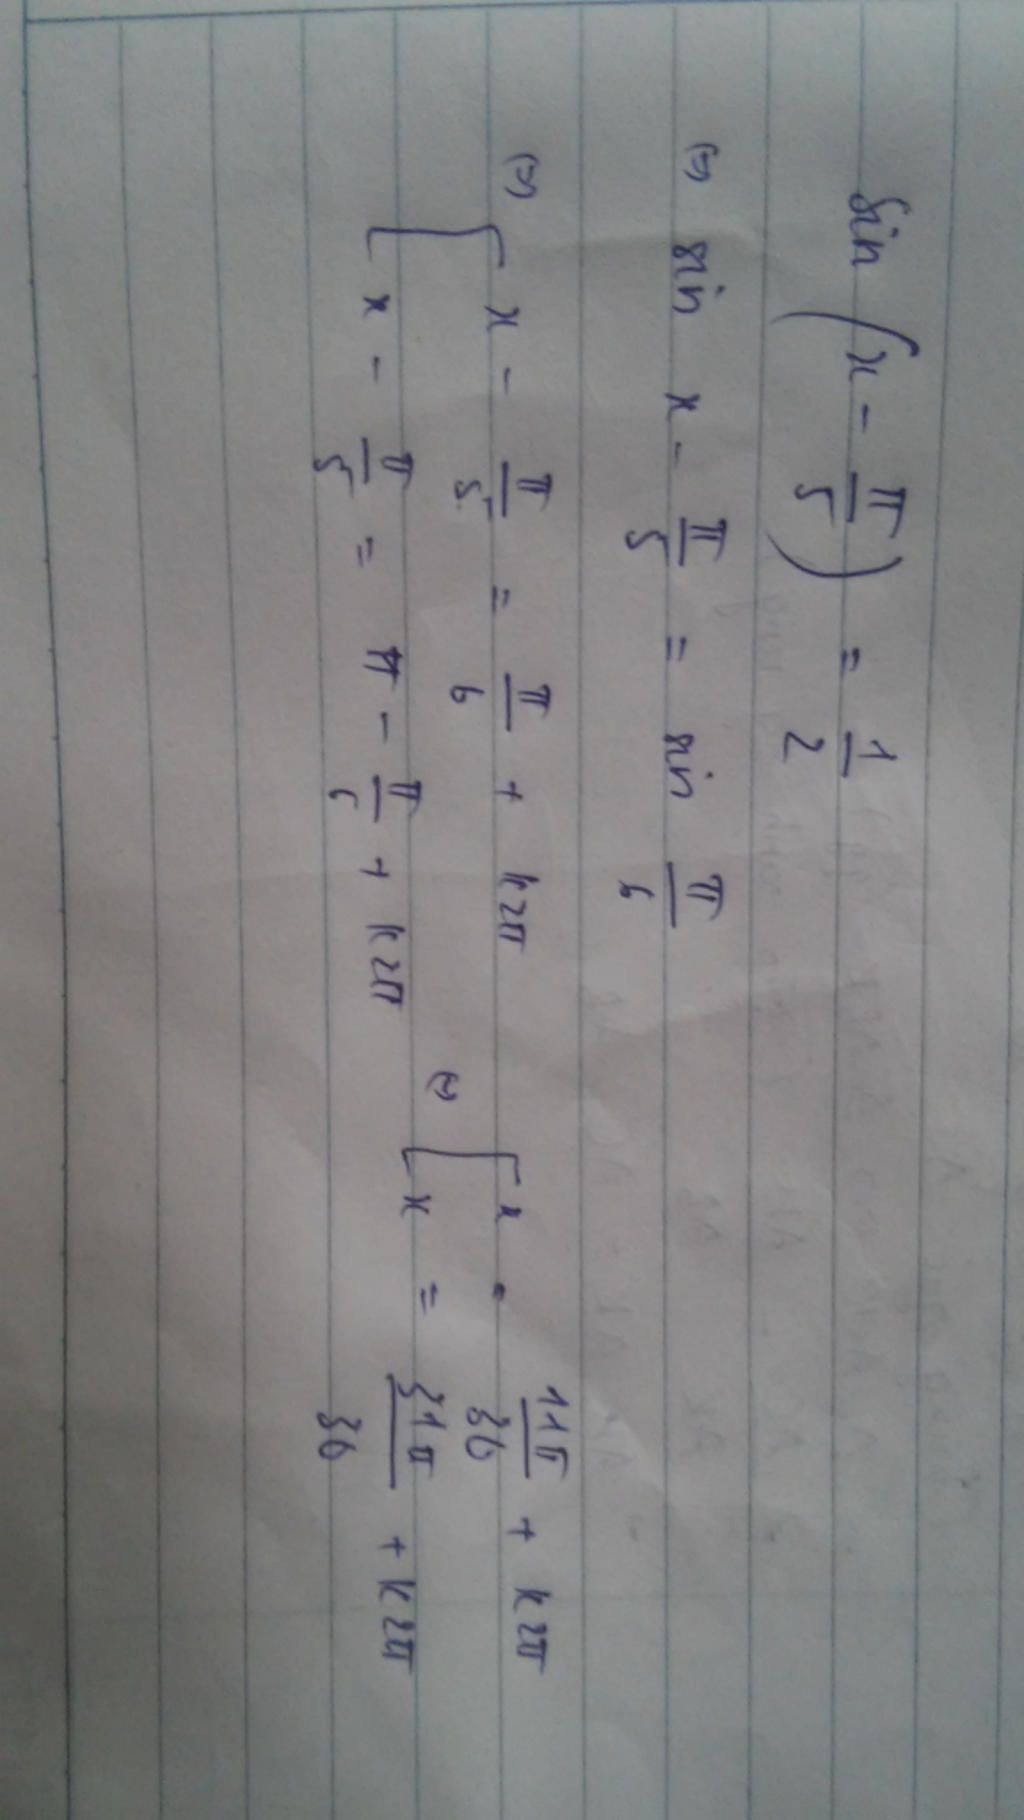 sin (x - π/5) = 1/2
(=) sin x - π/5 = sin π/6
(=) [ x - π/5 = π/6 + k2π
[ x - π/5 = π - π/6 + k2π
(=) [ x = 11π/30 + k2π
[ x = 31π/30 + k2π